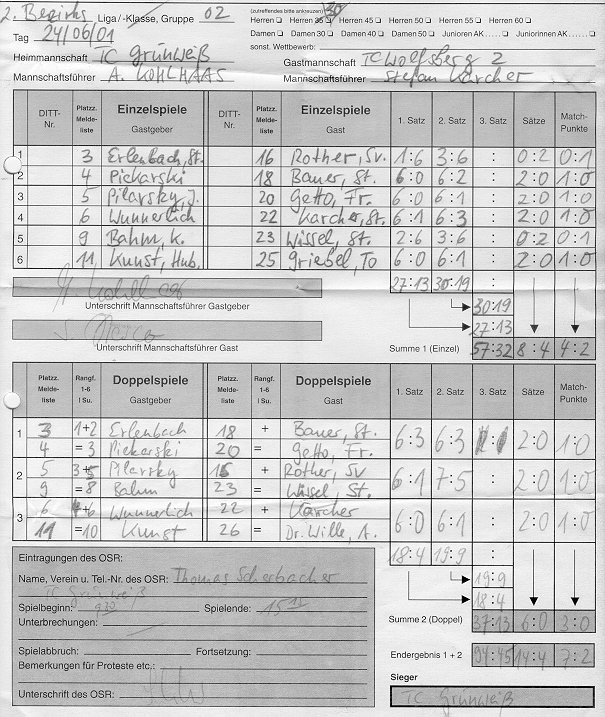 2. Bezirks Liga / -Klasse, Gruppe 02
(zutreffendes bitte ankreuzen) 30
Herren Herren 35 Herren 45 Herren 50 Herren 55 Herren 60
Tag 24/06/01
Damen Damen 30 Damen 40 Damen 50 Junioren AK ..... Juniorinnen AK .....
sonst. Wettbewerb:
Heimmannschaft TC Grünweiß Gastmannschaft TC Wolfsberg 2
Mannschaftsführer A. KOHLHAAS Mannschaftsführer Stefan Karcher
DITT-Nr. Platzz. Meldeliste Einzelspiele Gastgeber DITT-Nr. Platzz. Meldeliste Einzelspiele Gast 1. Satz 2. Satz 3. Satz Sätze Match-Punkte
1 3 Erlenbach, St. 16 Rother, Sv. 1:6 3:6 : 0:2 0:1
2 4 Piekarski 18 Bauer, St. 6:0 6:2 : 2:0 1:0
3 5 Pilarsky, J. 20 Getto, Fr. 6:0 6:1 : 2:0 1:0
4 6 Wunnerlich 22 Karcher, St. 6:1 6:3 : 2:0 1:0
5 9 Bahm, K. 23 Wissel, St. 2:6 3:6 : 0:2 0:1
6 11 Kunst, Hub. 25 Griebel, To 6:0 6:1 : 2:0 1:0
27:13 30:19
Unterschrift Mannschaftsführer Gastgeber
30:19
27:13
Unterschrift Mannschaftsführer Gast
Summe 1 (Einzel) 57:32 8:4 4:2
Platzz. Meldeliste Rangf. 1-6 I Su. Doppelspiele Gastgeber Platzz. Meldeliste Rangf. 1-6 I Su. Doppelspiele Gast 1. Satz 2. Satz 3. Satz Sätze Match-Punkte
1 3 1+2 Erlenbach 18 + Bauer, St. 6:3 6:3 2:0 1:0
4 =3 Piekarski 20 = Getto, Fr.
2 5 3+5 Pilarsky 16 + Rother, Sv 6:1 7:5 : 2:0 1:0
9 =8 Bahm 23 = Wissel, St.
3 6 +6 Wunnerlich 22 + Karcher 6:0 6:1 : 2:0 1:0
11 =10 Kunst 26 = Dr. Wille, A.
18:4 19:9
Eintragungen des OSR:
Name, Verein u. Tel.-Nr. des OSR: Thomas Scherbacher
19:9
TC Grünweiß
18:4
Spielbeginn: 9 30 Spielende: 15 15
Unterbrechungen:
Summe 2 (Doppel) 37:13 6:0 3:0
Spielabbruch: Fortsetzung:
Endergebnis 1 + 2 94:45 14:4 7:2
Bemerkungen für Proteste etc.:
Sieger
Unterschrift des OSR:
TC Grünweiß